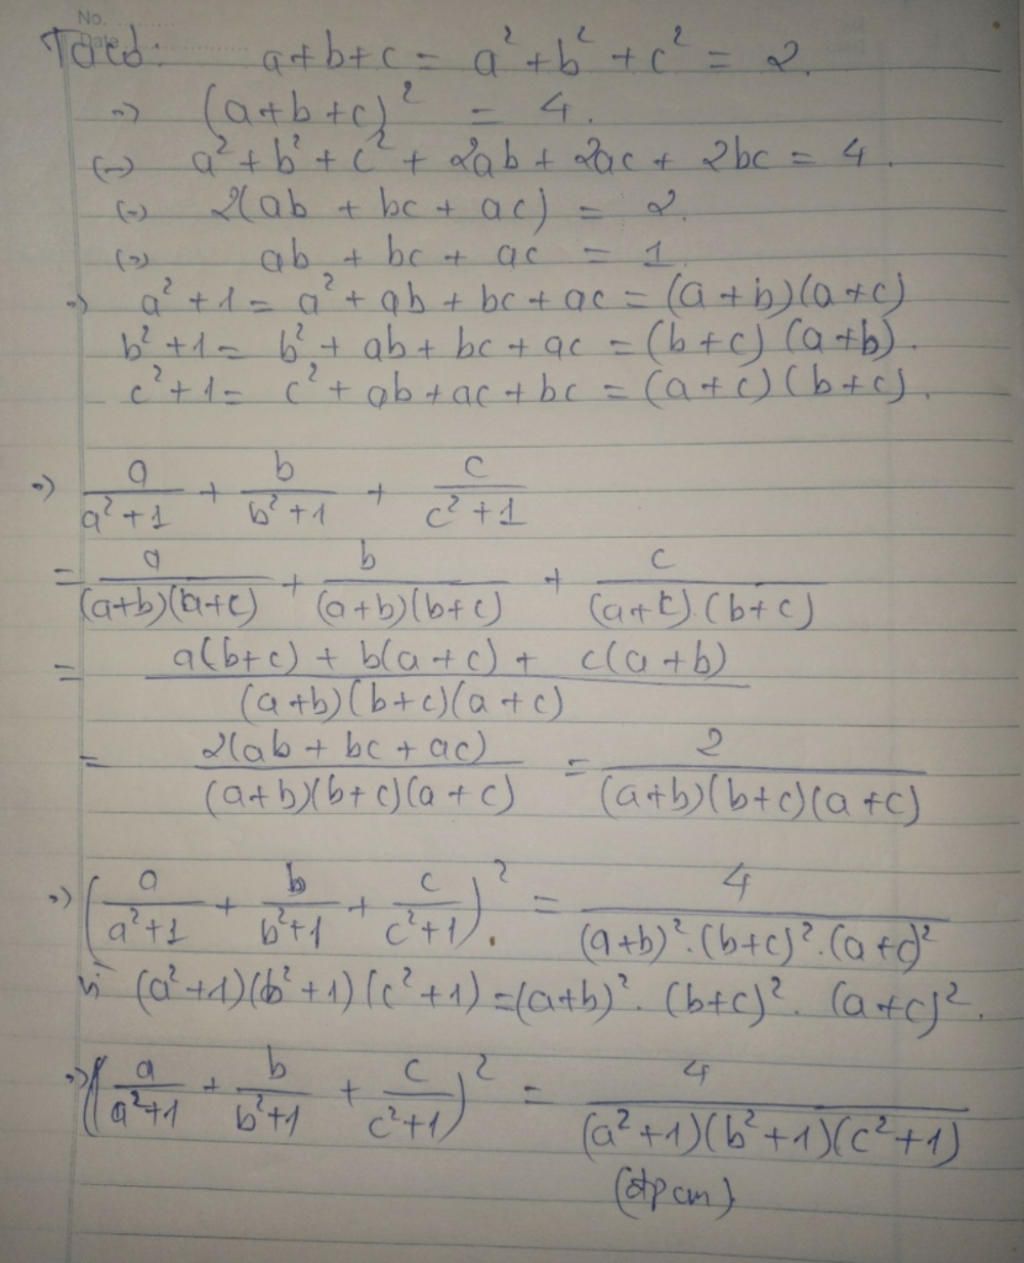 No.
Date
Ta có: a+b+c = a² + b² + c² = 2.
=> (a+b+c)² = 4.
(=) a² + b² + c² + 2ab + 2ac + 2bc = 4.
(=) 2(ab + bc + ac) = 2.
(=) ab + bc + ac = 1
=> a² + 1 = a² + ab + bc + ac = (a+b)(a+c)
b² + 1 = b² + ab + bc + ac = (b+c)(a+b).
c² + 1 = c² + ab + ac + bc = (a+c)(b+c).
=> a/(a²+1) + b/(b²+1) + c/(c²+1)
= a/((a+b)(a+c)) + b/((a+b)(b+c)) + c/((a+c).(b+c))
= (a(b+c) + b(a+c) + c(a+b))/((a+b)(b+c)(a+c))
= 2(ab + bc + ac)/((a+b)(b+c)(a+c)) = 2/((a+b)(b+c)(a+c))
=> (a/(a²+1) + b/(b²+1) + c/(c²+1))² = 4/((a+b)².(b+c)².(a+c)²)
Vì (a²+1)(b²+1)(c²+1) = (a+b)². (b+c)². (a+c)².
=> (a/(a²+1) + b/(b²+1) + c/(c²+1))² = 4/((a²+1)(b²+1)(c²+1))
(đpcm)